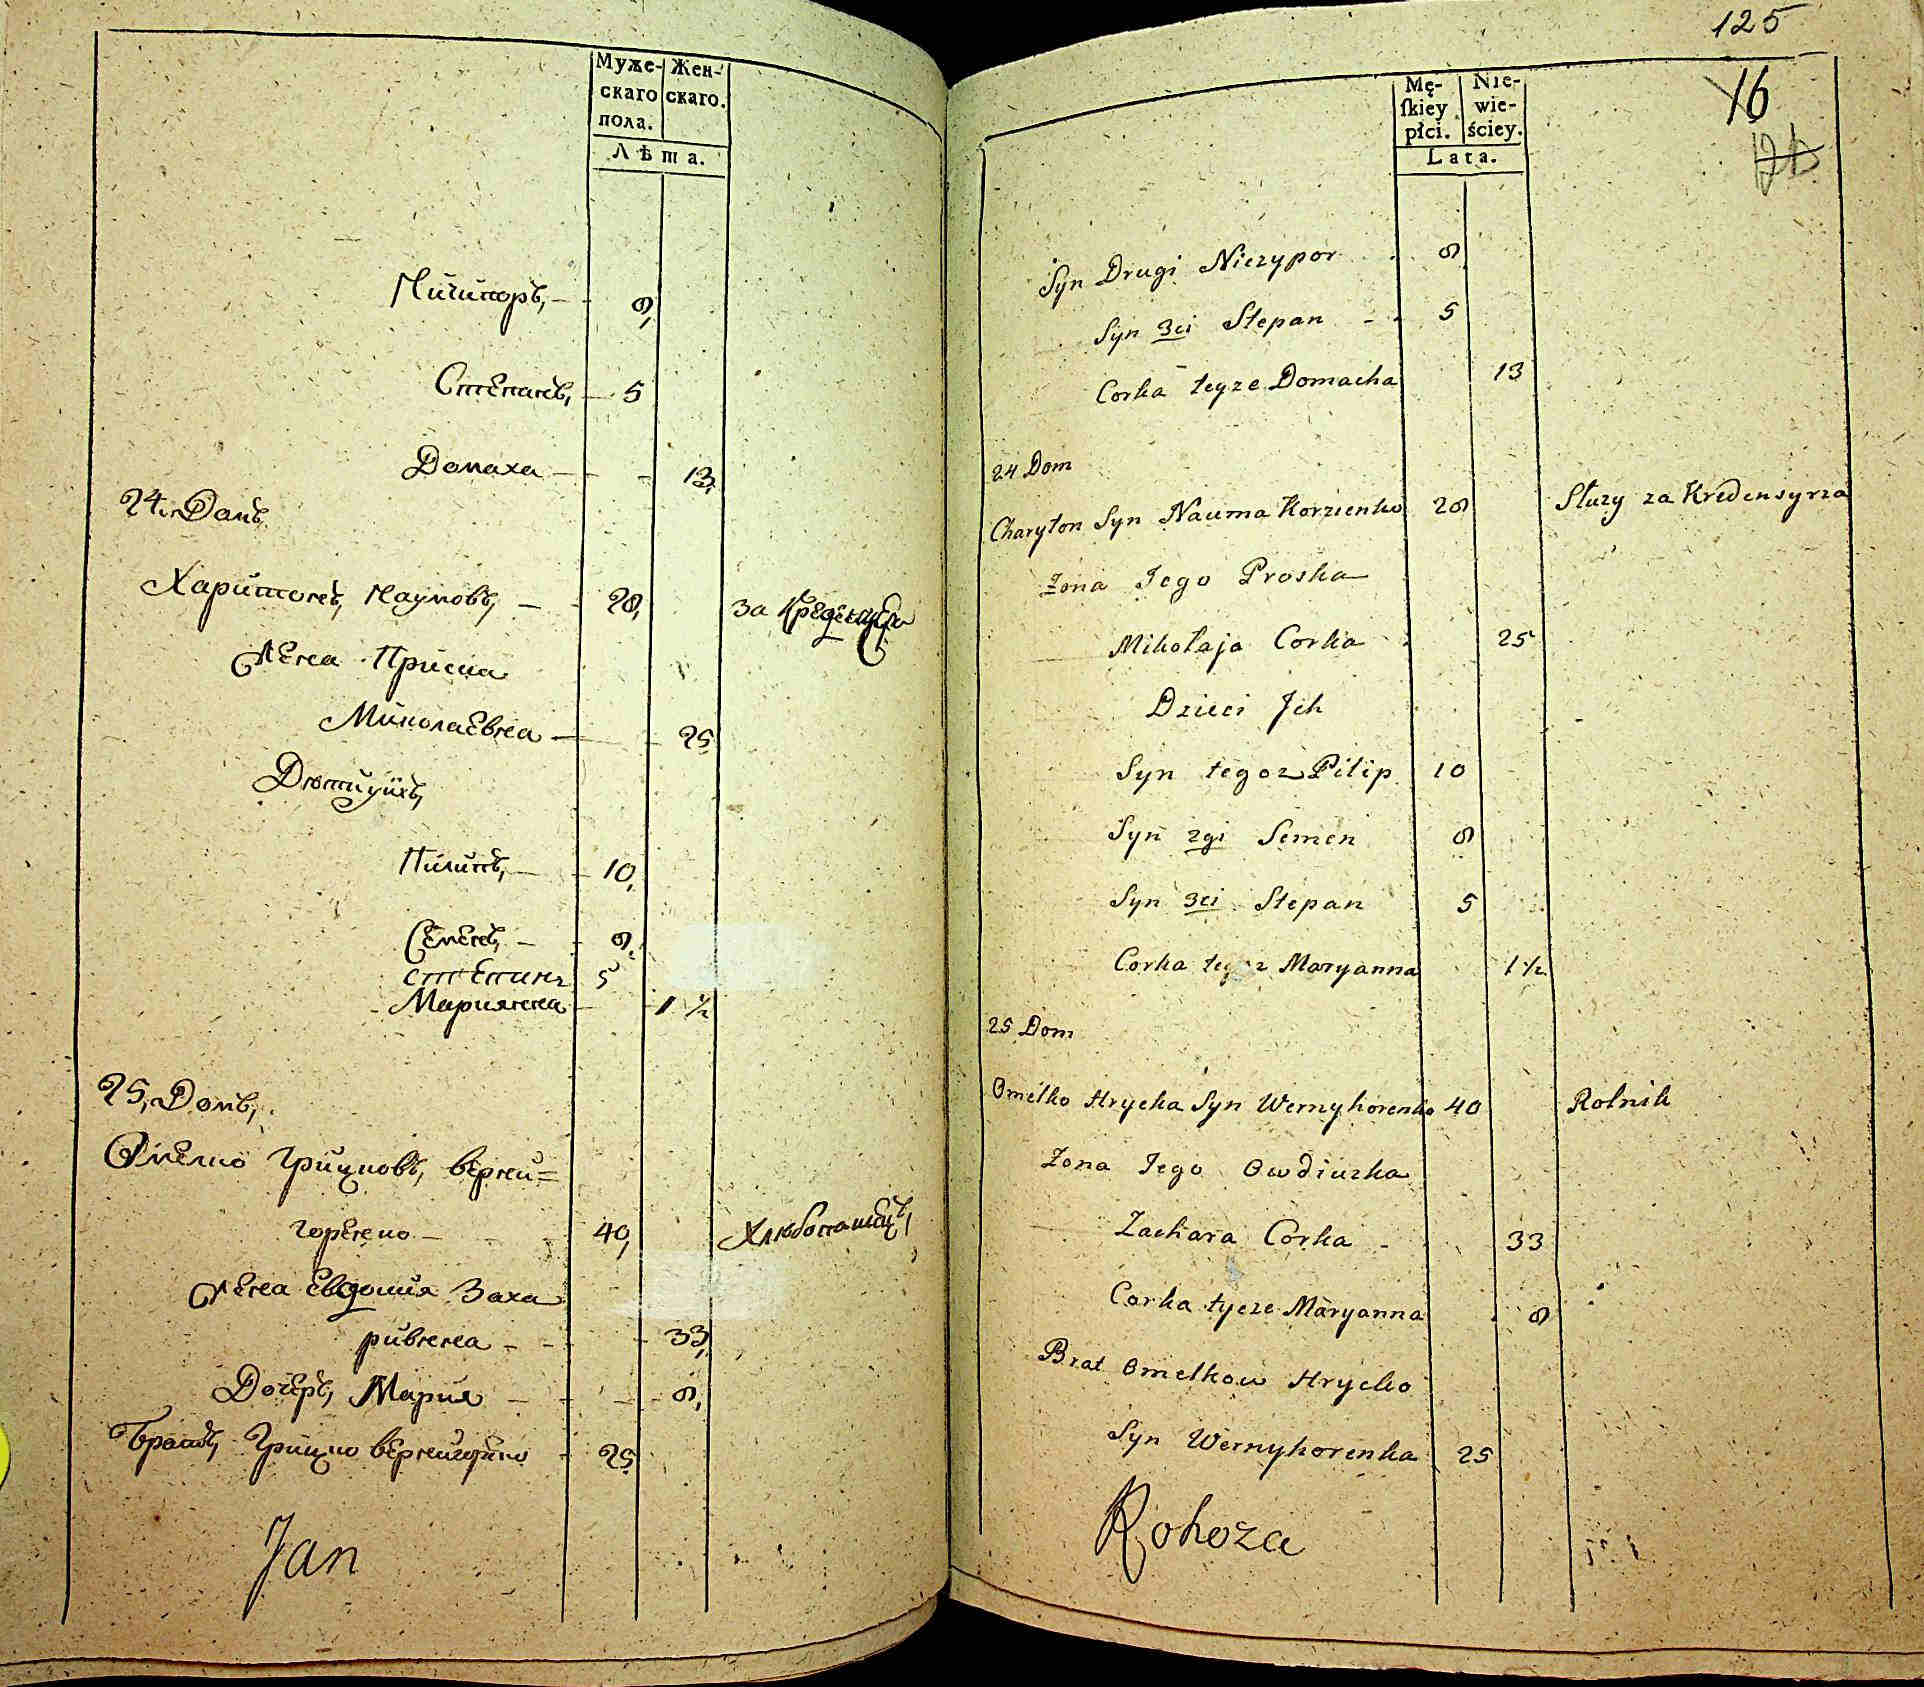 Муже-
скаго
пола.
Жен-
скаго.
Лѣта.
Ничипоръ, 8,
Степанъ, 5
Домаха 13,
24, Домъ
Харитонъ, Наумовъ, 28, за Кредѣнцера
Жена Приска
Миколаевна 25
Дѣти ихъ,
Пилипъ, 10,
Семенъ, 8,
степинъ 5
Мариянна 1 ½
25, Домъ,
Омелко Грицковъ, верни=
горенко 40, Хлѣбопашецъ,
Жена Евдокия Заха
ривнна 33,
Дочеръ, Мария 8,
Братъ, Грицко вернигоренко 25
Jan
125
16
Mę-
ſkiey
płci.
Nie-
wie-
ściey.
Lata.
Syn Drugi Niczypor 8
Syn 3ci Stepan 5
Corka teyze Domacha 13
24 Dom
Charyton Syn Nauma Korzienko 28 Słuzy za Kredensyrza
Zona Jego Proska
Mikołaja Corka 25
Dzieci Jch
Syn tegoz Pilip 10
Syn 2gi Semen 8
Syn 3ci Stepan 5
Corka Maryanna 1 ½
25 Dom
Omelko Hrycka Syn Wernyhorenko 40 Rolnik
Zona Jego Owdiuzka
Zachara Corka 33
Corka tycze Maryanna 8
Brat Omelkow Hrycko
Syn Wernyhorenka 25
Rohoza